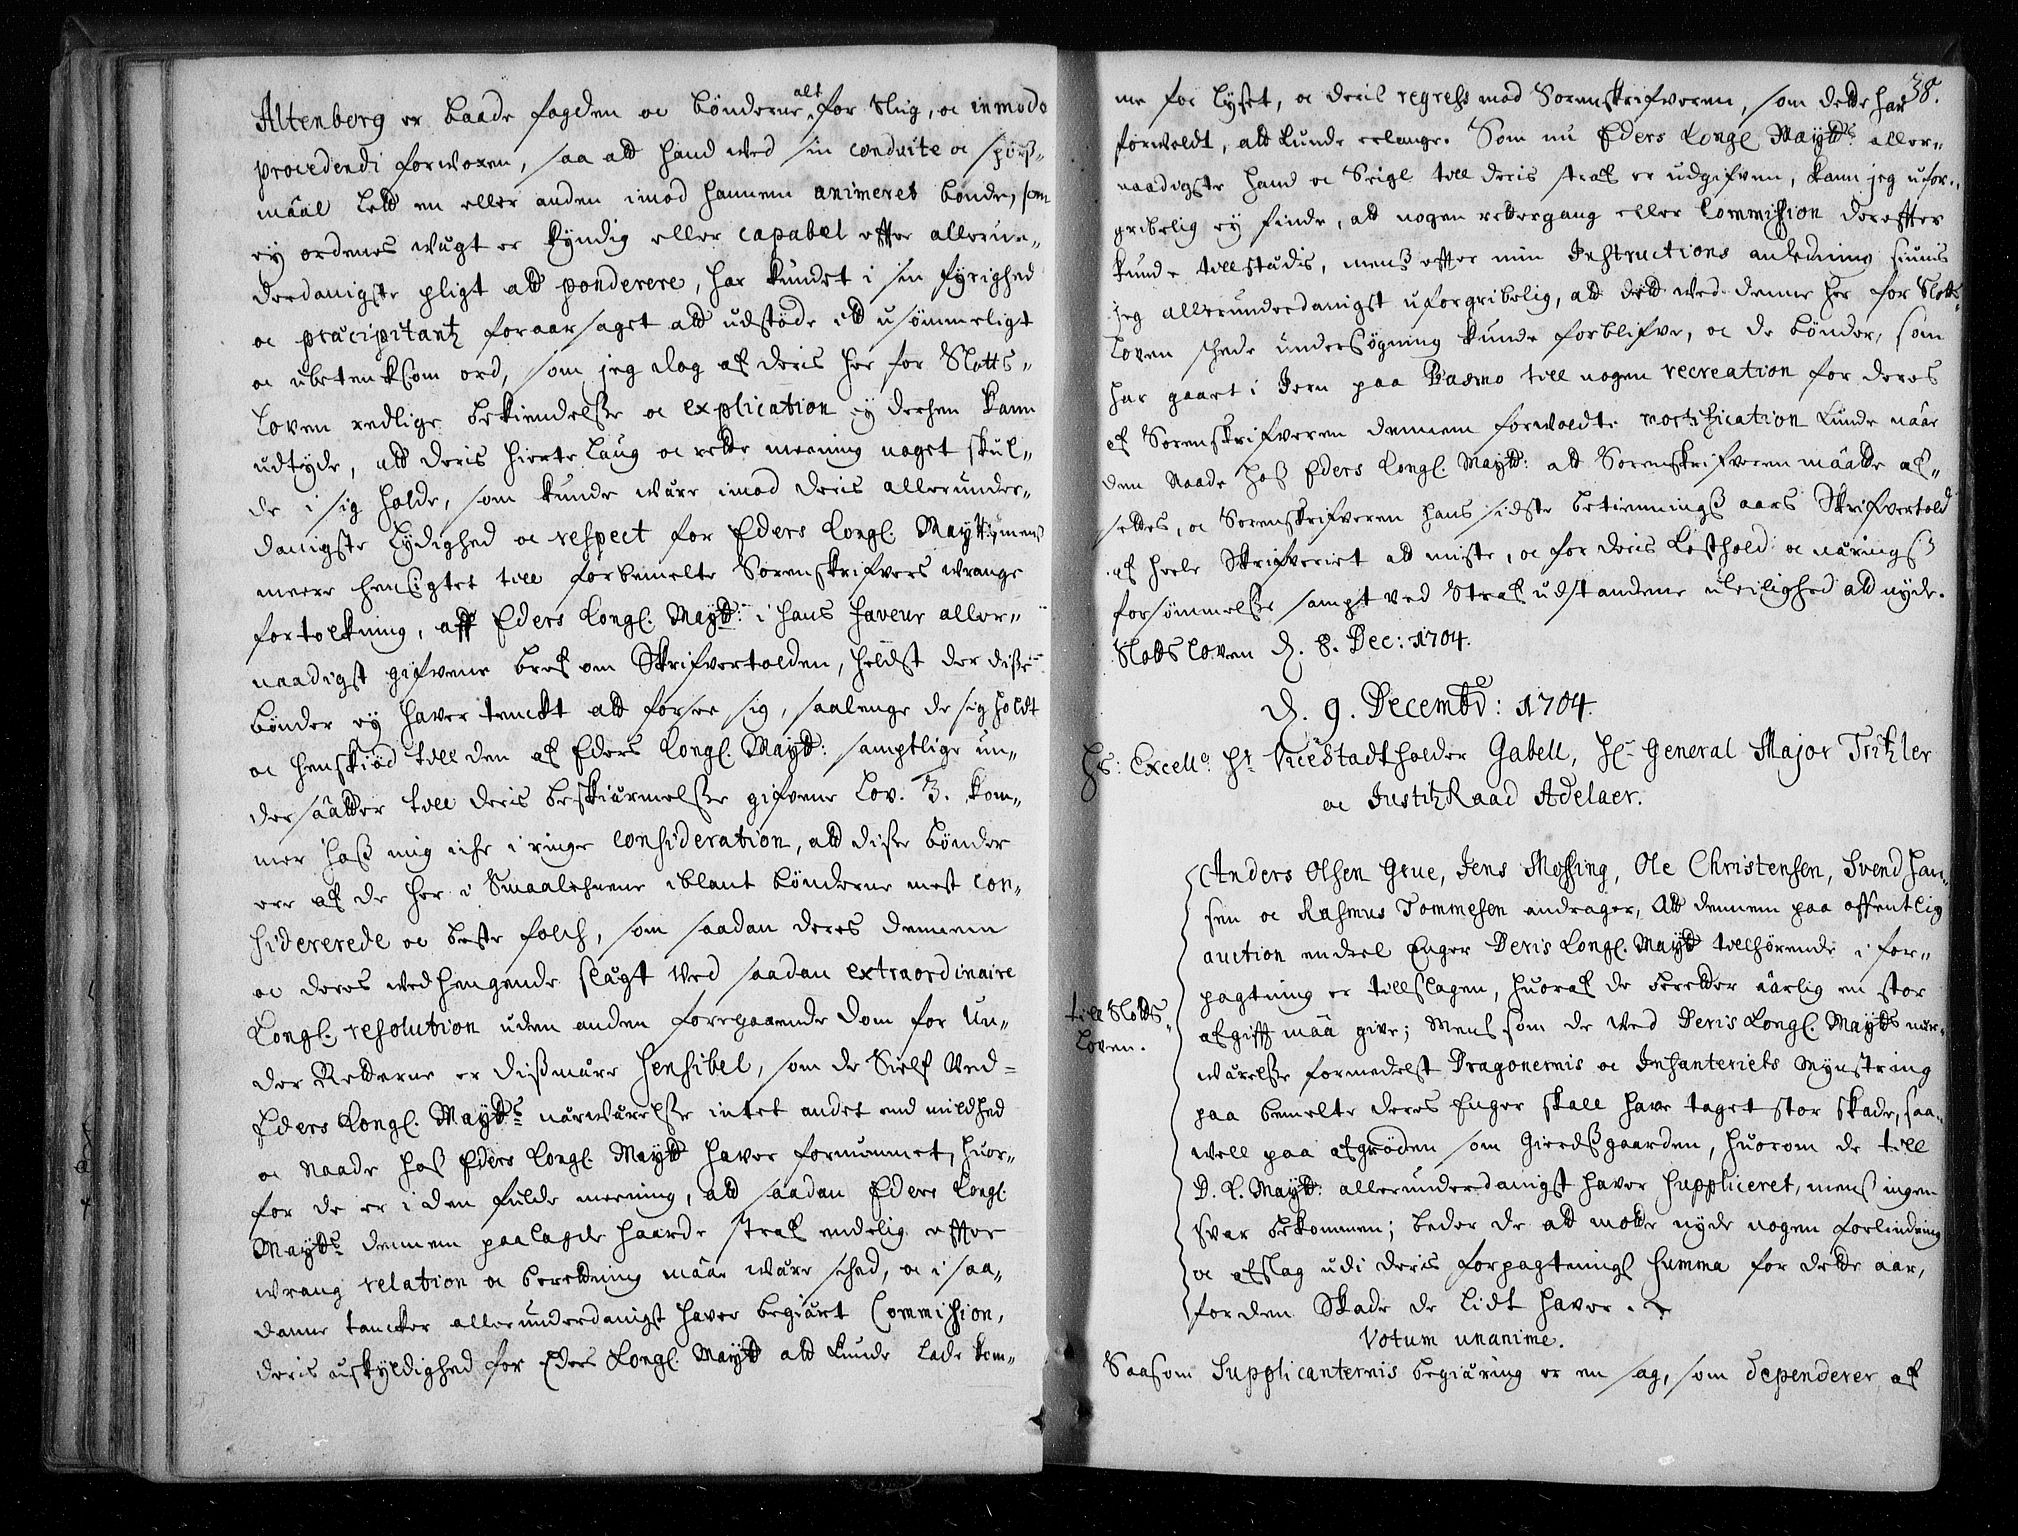 Altenborg er baade fogden oc bönderne alt for slug, oc in modo
procedendi forvoxen, saa att hand ved sin conduite oc spörs-
maal lett en eller anden imod hannem animeret bonde, som
ey ordenes vægt er kyndig eller capabel effter allerun-
derdanigste pligt att ponderere, har kundet i sin fyrighed
oc præcipitantz foraarsaget att udstöde ett usömmeligt
oc ubetenksom ord, som jeg dog af deris her for Slotts-
Loven redlige bekiendelsse oc explication ey derhen kann
udtyde, att deris hierte laug oc rette meening noget skul-
de i sig holde, som kunde være imod deris allerunder-
danigste lydighed oc respect for Eders Kongl. Maytt: mens
meere hensigtet till forbemelte Sorenskrifvers vrange
fortolkning, aff Eders Kongl. Maytt: i hans faveur aller-
naadigst gifvene bref om Skrifvertolden, heldst der disse
bönder ey haver tenckt att forsee sig, saalenge de sig holdt
oc henskiöd till den af Eders Kongl. Maytt: samptlige un-
dersaatter till deris beskiermelsse gifvene Lov. 3. kom-
mer hoss mig iche i ringe consideration, att disse bönder
ere af de her i Smaalehnene iblant bönderne mest con-
sidererede oc beste folch, som saadan deres dennem
oc deres vedhengende slägt ved saadan extraordinaire
Kongl. resolution uden anden foregaaende dom for un-
der Retterne er dissmere sensibel, som de Sielf ved
Eders Kongl. Maytts nærværelsse intet andet end mildhed
oc naade hoss Eders Kongl. Maytt haver fornummet, huor-
for de er i den fulde meening, att saadan Eders Kongl.
Maytts dennem paalagde haarde straf endelig effter
vrang relation oc berettning maae være sched, oc i saa-
danne tancker allerunderdanigst haver begiært Commission,
deris uskyldighed for Eders Kongl. Maytt att kunde lade kom-
38.
me for lyset, oc deris regress mod Sorenskrifveren, som dette har
forvoldt, att kunde erlange. Som nu Eders Kongl. Maytts aller-
naadigste haand oc Seigl till deris straf er udgifven, kann jeg ufor-
gribelig ey finde, att nogen rettergang eller Commission dereffter
kunde tillstædis, menss effter min Instructions anledning siunis
jeg allerunderdanigst uforgribelig, att dett ved denne her for Slotts-
Loven schede undersögning kunde forblifve, oc de bönder, som
har gaaet i Jern paa Basmo till nogen recreation for deres
af Sorenskrifveren dennem forvoldte mortification kunde naae
den naade hoss Eders Kongl. Maytt: att Sorenskrifveren maatte af-
settes, oc Sorenskrifveren hans sidste betienningss aars Skrifvertold
af heele Skrifveriet att miste, oc for deris kosthold oc næringss
forsömmelsse sampt ved Straf udstandene uleilighed att nyde.
Slotts Loven d. 8. Dec: 1704.
d. 9. Decembr: 1704.
Hs: Excell: Hr Vice Stadtholder Gabell, Hr General Major Tritzler
oc Justitz Raad Adelaer.
till Slotts-
Loven.
Anders Olsen Grue, Jens Mossing, Ole Christensen, Svend Han-
sen oc Rasmus Tommesen andrager, Att dennem paa offentlig
auction endeel Enger Deris Kongl. Maytt tilhörende i for-
pagtning er tillslagen, huoraf de beretter aarlig en stor
afgifft maa give; Mens som de ved Deris Kongl. Maytts nær-
værelsse formedelst Dragonernis oc Infanteriets Mynstring
paa bemelte deres Enger skall have taget stor skade, saa-
vell paa afgröden som gierdssgaarden, huorom de till
D. K. Maytt: allerunderdanigst haver suppliceret, menss ingen
svar bekommen; beder de att motte nyde nogen forlindring
oc afslag udi deris forpagtnings summa for dette aar,
for den Skade de lidt haver.
Votum unanime.
Saasom Supplicanternis begiæring er en sag, som dependerer af